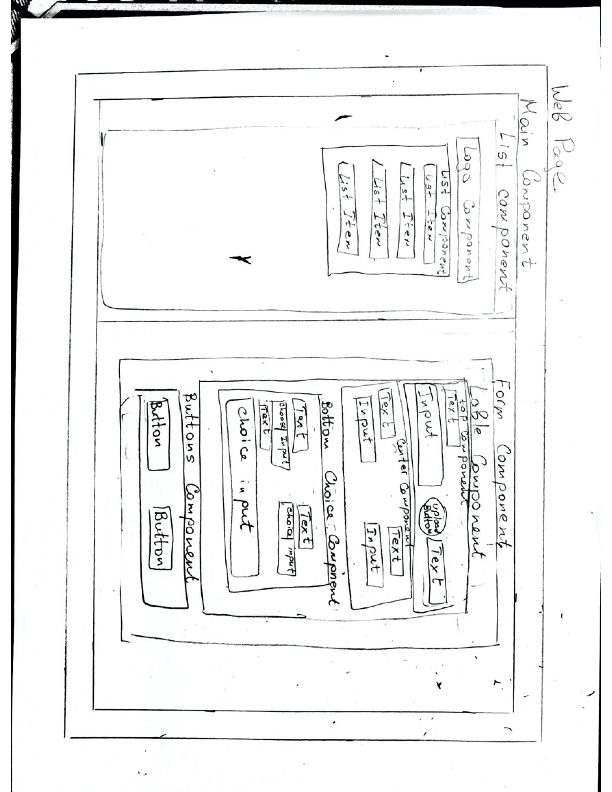 Web Page
Main Component
List component
Logo Component
List Component
List Item
List Item
List Item
List Item
Form Component
Lable Component
top component
Text
Input
Upload
Button
Text
Center Component
Text
Input
Text
Input
Bottom Choice Component
Text
Choose Input
Text
Choice input
Text
choice input
Buttons Component
Button
Button